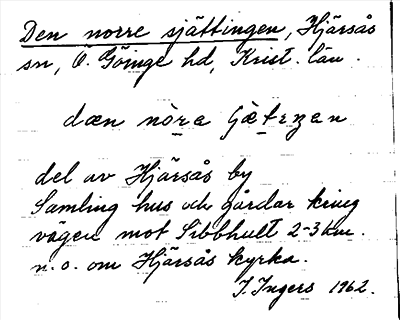 Den norre sjättingen, Hjärsås
sn, Ö. Göinge hd, Krist. län.
dæn nòra
del av Hjärsås by
Samling hus och gårdar kring
vägen mot Sibbhult 2-3 km.
n.o. om Hjärsås kyrka.
I. Ingers 1962.